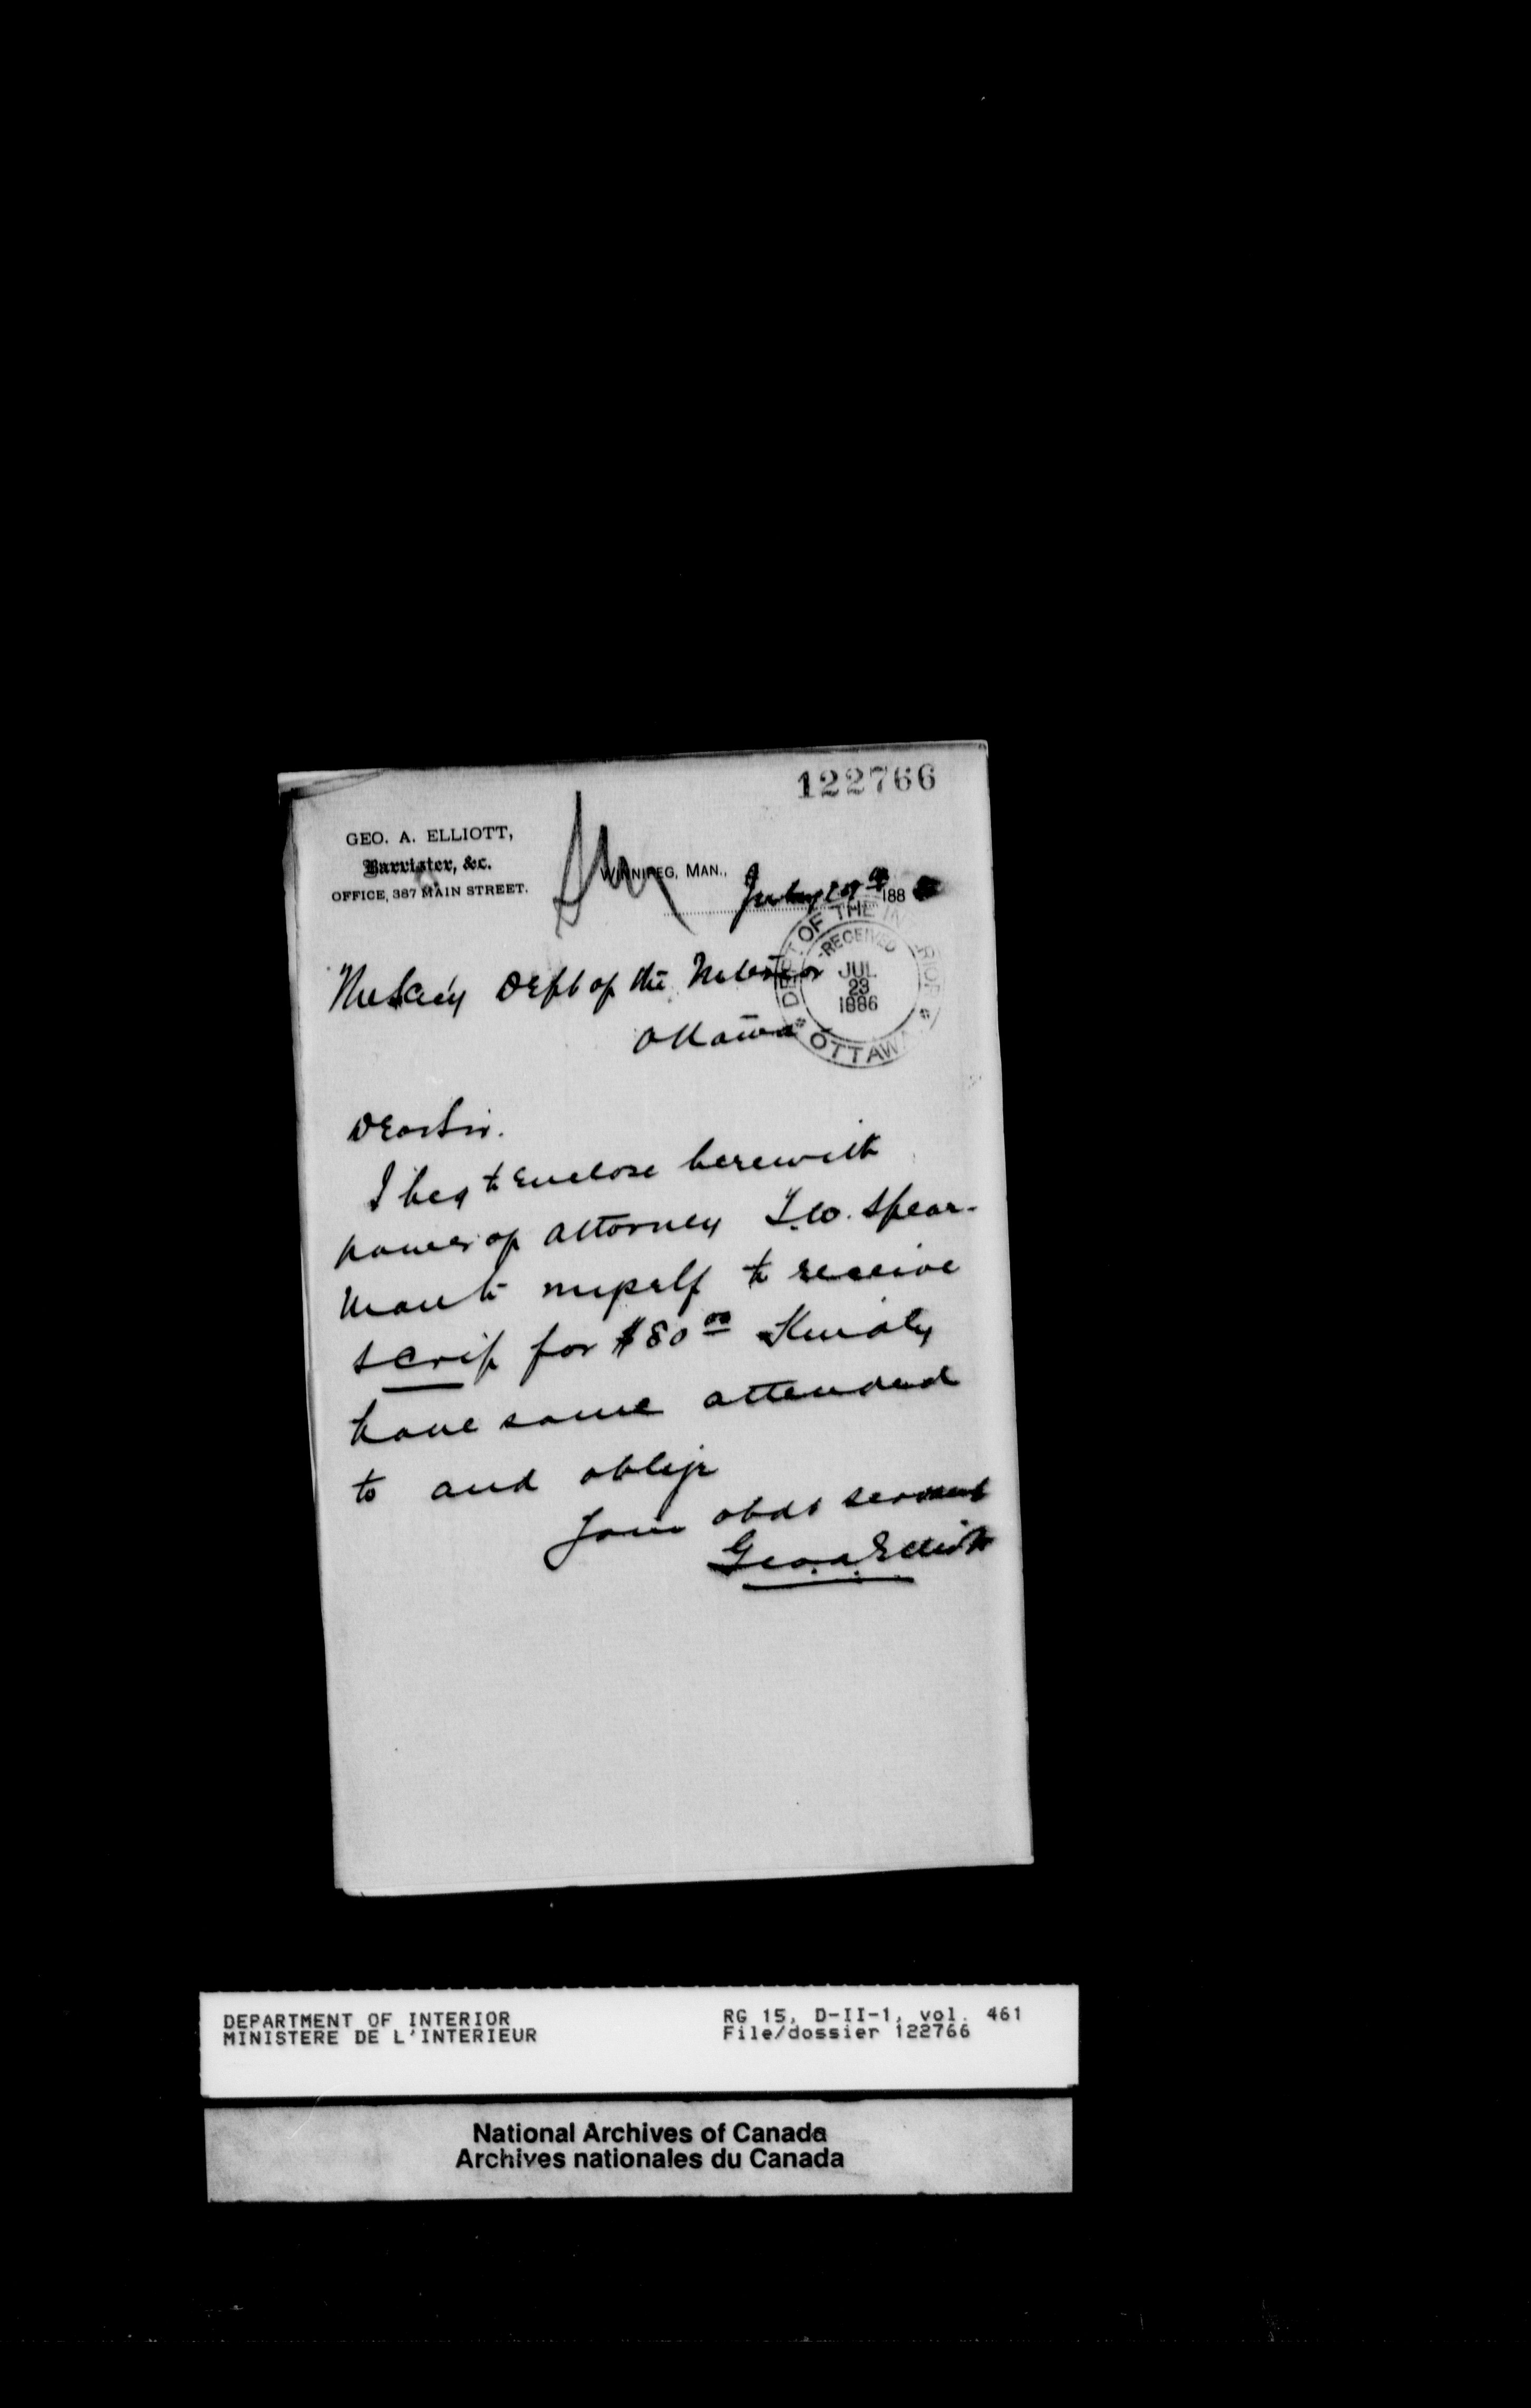 122766
GEO. A. ELLIOTT,
Barrister, &c.
OFFICE, 387 MAIN STREET.
WINNIPEG, MAN., July 188
DEPT OF THE INTERIOR
RECEIVED
JUL
23
1886
OTTAWA
The Secy Dept of the Interior
Ottawa
Dear Sir.
I beg to enclose herewith
power of attorney Spear-
man to myself to receive
scrip for $80 00 Kindly
have same attended
to and oblige
Your obdt servant
Geo. A. Elliott
DEPARTMENT OF INTERIOR RG 15, D-II-1, vol. 461
MINISTERE DE L'INTERIEUR File/dossier 122766
National Archives of Canada
Archives nationales du Canada